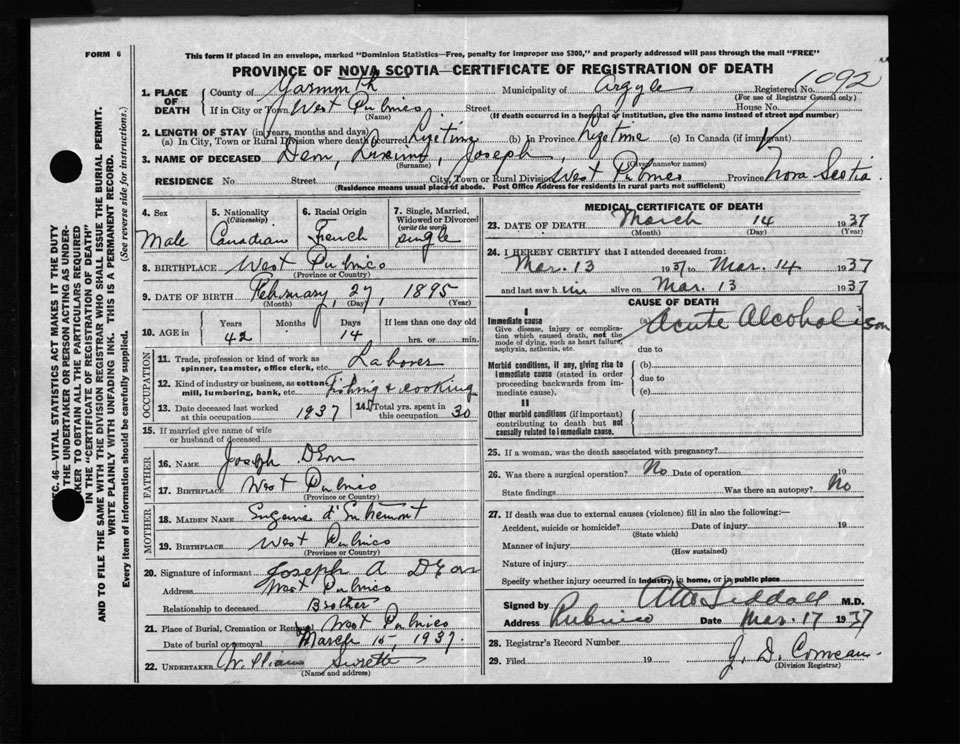 FORM 6
This form if placed in an envelope, marked "Dominion Statistics—Free, penalty for improper use $300," and properly addressed will pass through the mail "FREE"
PROVINCE OF NOVA SCOTIA—CERTIFICATE OF REGISTRATION OF DEATH
1. PLACE OF DEATH
County of Yarmouth Municipality of Argyle Registered No. 1092
(For use of Registrar General only)
If in City or Town West Pubnico Street House No.
(Name) (If death occurred in a hospital or institution, give the name instead of street and number)
2. LENGTH OF STAY (in years, months and days)
(a) In City, Town or Rural Division where death occurred Lifetime (b) In Province Lifetime (c) In Canada (if immigrant)
3. NAME OF DECEASED Joseph
(Surname) (Given name or names)
RESIDENCE No Street City, Town or Rural Division West Pubnico Province Nova Scotia.
(Residence means usual place of abode. Post Office Address for residents in rural parts not sufficient)
SEC. 46—VITAL STATISTICS ACT MAKES IT THE DUTY
OF THE UNDERTAKER OR PERSON ACTING AS UNDER-
TAKER TO OBTAIN ALL THE PARTICULARS REQUIRED
IN THE "CERTIFICATE OF REGISTRATION OF DEATH"
AND TO FILE THE SAME WITH THE DIVISION REGISTRAR WHO SHALL ISSUE THE BURIAL PERMIT.
WRITE PLAINLY WITH UNFADING INK. THIS IS A PERMANENT RECORD.
Every item of information should be carefully supplied. (See reverse side for instructions.)
4. Sex Male
5. Nationality (Citizenship) Canadian
6. Racial Origin French
7. Single, Married, Widowed or Divorced (write the word) Single
8. BIRTHPLACE West Pubnico
(Province or Country)
9. DATE OF BIRTH February, 27, 1895
(Month) (Day) (Year)
10. AGE in Years 42 Months Days 14 If less than one day old hrs. or min.
OCCUPATION
11. Trade, profession or kind of work as spinner, teamster, office clerk, etc. Laborer
12. Kind of industry or business, as cotton mill, lumbering, bank, etc. Fishing & cooking
13. Date deceased last worked at this occupation 1937
14. Total yrs. spent in this occupation 30
15. If married give name of wife or husband of deceased
FATHER
16. NAME Joseph D'Eon
17. BIRTHPLACE West Pubnico
(Province or Country)
MOTHER
18. MAIDEN NAME d'Entremont
19. BIRTHPLACE West Pubnico
(Province or Country)
20. Signature of informant Joseph A D'Eon
Address West Pubnico
Relationship to deceased Brother
21. Place of Burial, Cremation or Removal West Pubnico
Date of burial or removal March 15, 1937.
22. UNDERTAKER William Surette
(Name and address)
MEDICAL CERTIFICATE OF DEATH
23. DATE OF DEATH March 14 1937
(Month) (Day) (Year)
24. I HEREBY CERTIFY that I attended deceased from:
Mar. 13 1937 to Mar. 14 1937
and last saw him alive on Mar. 13 1937
CAUSE OF DEATH
I
Immediate cause (a) Acute Alcoholism
Give disease, injury or complication which caused death, not the mode of dying, such as heart failure, asphyxia, asthenia, etc.
due to
Morbid conditions, if any, giving rise to immediate cause (stated in order proceeding backwards from immediate cause).
(b)
due to
(c)
II
Other morbid conditions (if important) contributing to death but not causally related to immediate cause.
25. If a woman, was the death associated with pregnancy?
26. Was there a surgical operation? No Date of operation 19
State findings Was there an autopsy? No
27. If death was due to external causes (violence) fill in also the following:—
Accident, suicide or homicide? Date of injury 19
(State which)
Manner of injury
(How sustained)
Nature of injury
Specify whether injury occurred in industry, in home, or in public place
Signed by Siddall M.D.
Address Pubnico Date Mar. 17 1937
28. Registrar's Record Number
29. Filed 19 J. D. Comeau
(Division Registrar)